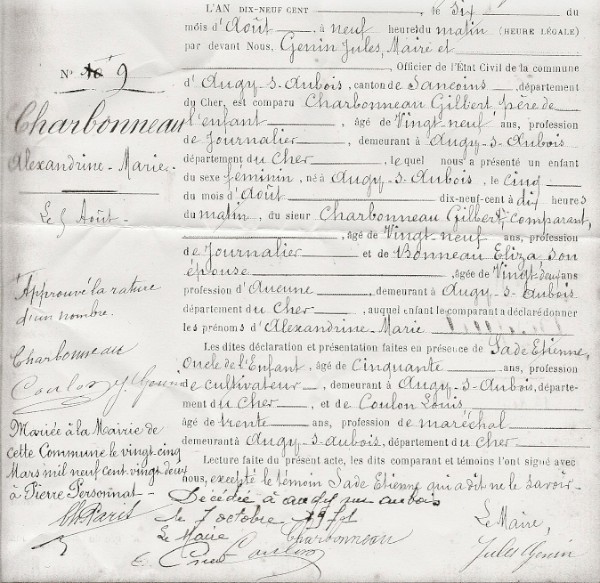 L'AN DIX-NEUF CENT le Six du
mois d'Août, à neuf heures du matin (HEURE LÉGALE)
par devant Nous, Genin Jules, Maire et
Officier de l'État Civil de la commune
d'Augy-s-Aubois, canton de Sancoins, département
du Cher, est comparu Charbonneau Gilbert père de
l'enfant, âgé de Vingt-neuf ans, profession
de Journalier, demeurant à Augy-s-Aubois
département du Cher, lequel nous a présenté un enfant
du sexe féminin, né à Augy-s-Aubois, le cinq
du mois d'Août dix-neuf-cent à dix heures
du matin, du sieur Charbonneau Gilbert, Comparant,
âgé de Vingt-neuf ans, profession
de Journalier et de Bonneau Eliza son
épouse, âgée de Vingt-deux ans
profession d'Aucune, demeurant à Augy-s-Aubois
département du Cher, auquel enfant le comparant a déclaré donner
les prénoms d'Alexandrine-Marie
Les dites déclaration et présentation faites en présence de Sade Etienne,
Oncle de l'Enfant, âgé de Cinquante ans, profession
de cultivateur, demeurant à Augy-s-Aubois, départe-
ment du Cher, et de Coulon Louis
âgé de trente ans, profession de maréchal
demeurant à Augy-s-aubois, département du Cher
Lecture faite du présent acte, les dits comparant et témoins l'ont signé avec
nous, excepté le témoin Sade Etienne qui a dit ne le savoir.
Le Maire,
Jules Genin
Charbonneau
Coulon
Décédée à augy sur aubois
le 7 octobre
Le Maire
N° 9
Charbonneau
Alexandrine-Marie.
Le 5 Août
Approuvé la rature
d'un nombre.
Charbonneau
Coulon J. Genin
Mariée à la Mairie de
cette Commune le vingt cinq
Mars mil neuf cent vingt deux
à Pierre Personnat